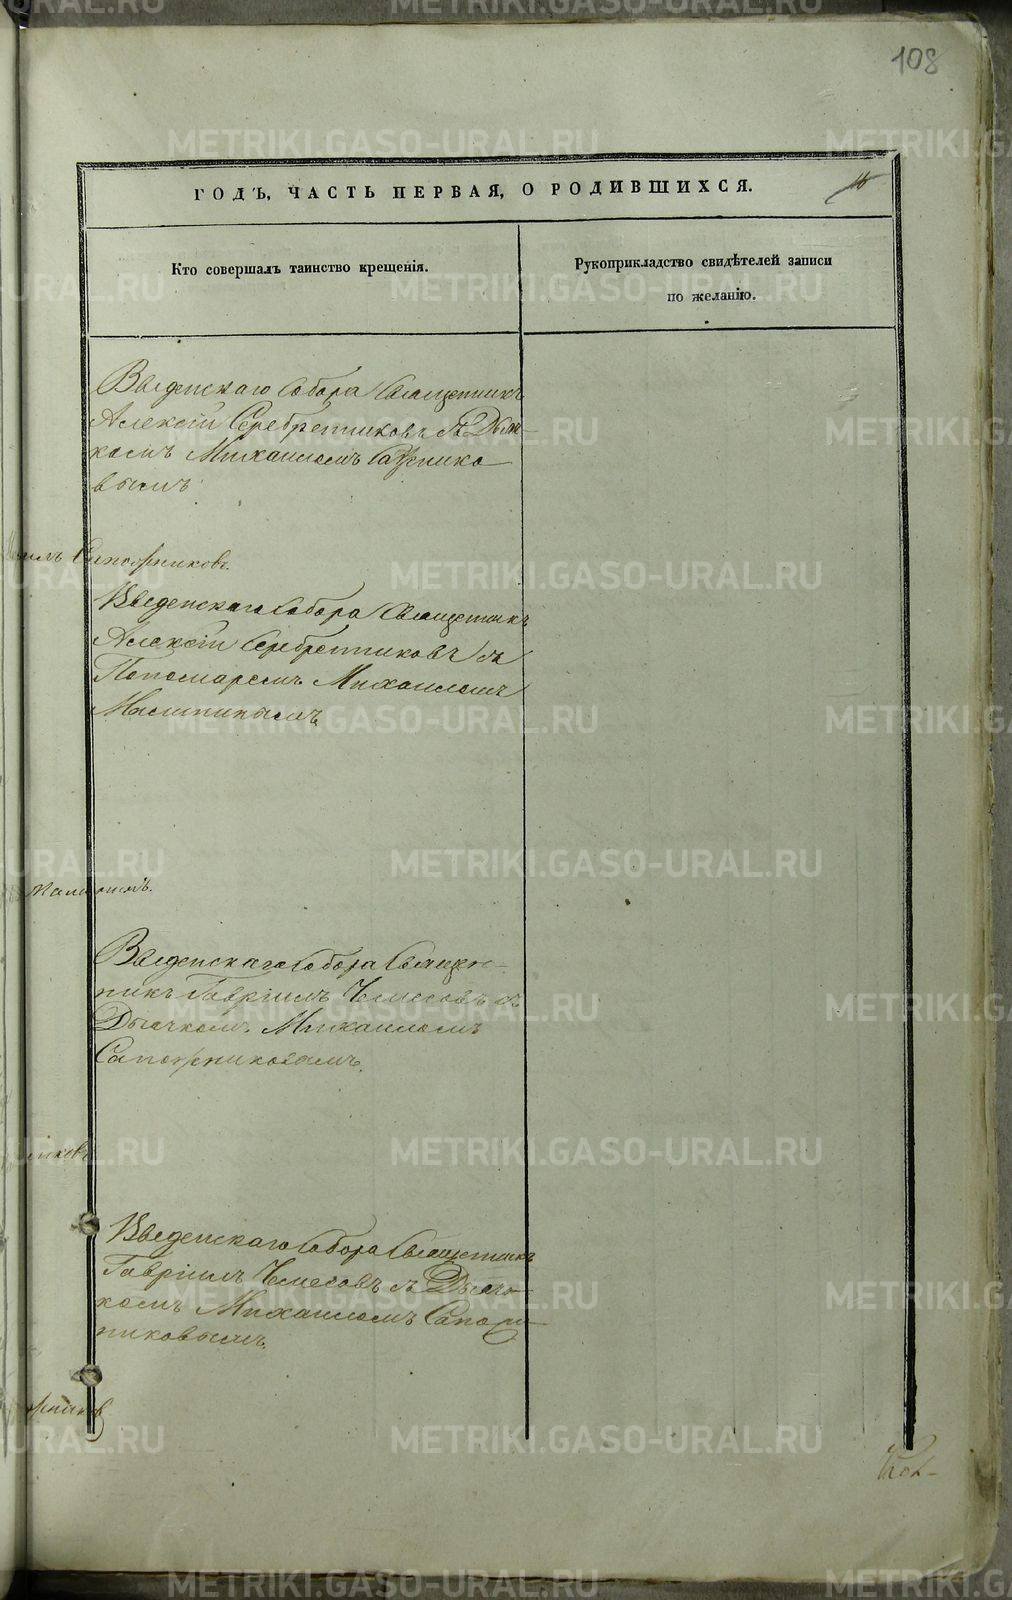 108
ГОДЪ, ЧАСТЬ ПЕРВАЯ, О РОДИВШИХСЯ.
Кто совершалъ таинство крещенія.
Рукоприкладство свидѣтелей записи
по желанію.
Введенскаго Собора Священникъ
Алексій Серебренниковъ съ Дьяч-
комъ Михаиломъ
вымъ
Сапожниковъ.
Введенскаго Собора Священникъ
Алексій Серебренниковъ съ
Пономаремъ Михаиломъ
Введенскаго Собора Священ-
никъ Гавріилъ Чемесовъ съ
Дьячкомъ Михаиломъ
Сапожниковымъ.
Введенскаго Собора Священникъ
Гавріилъ Чемесовъ съ Дьяч-
комъ Михаиломъ Сапож-
никовымъ.
METRIKI.GASO-URAL.RU